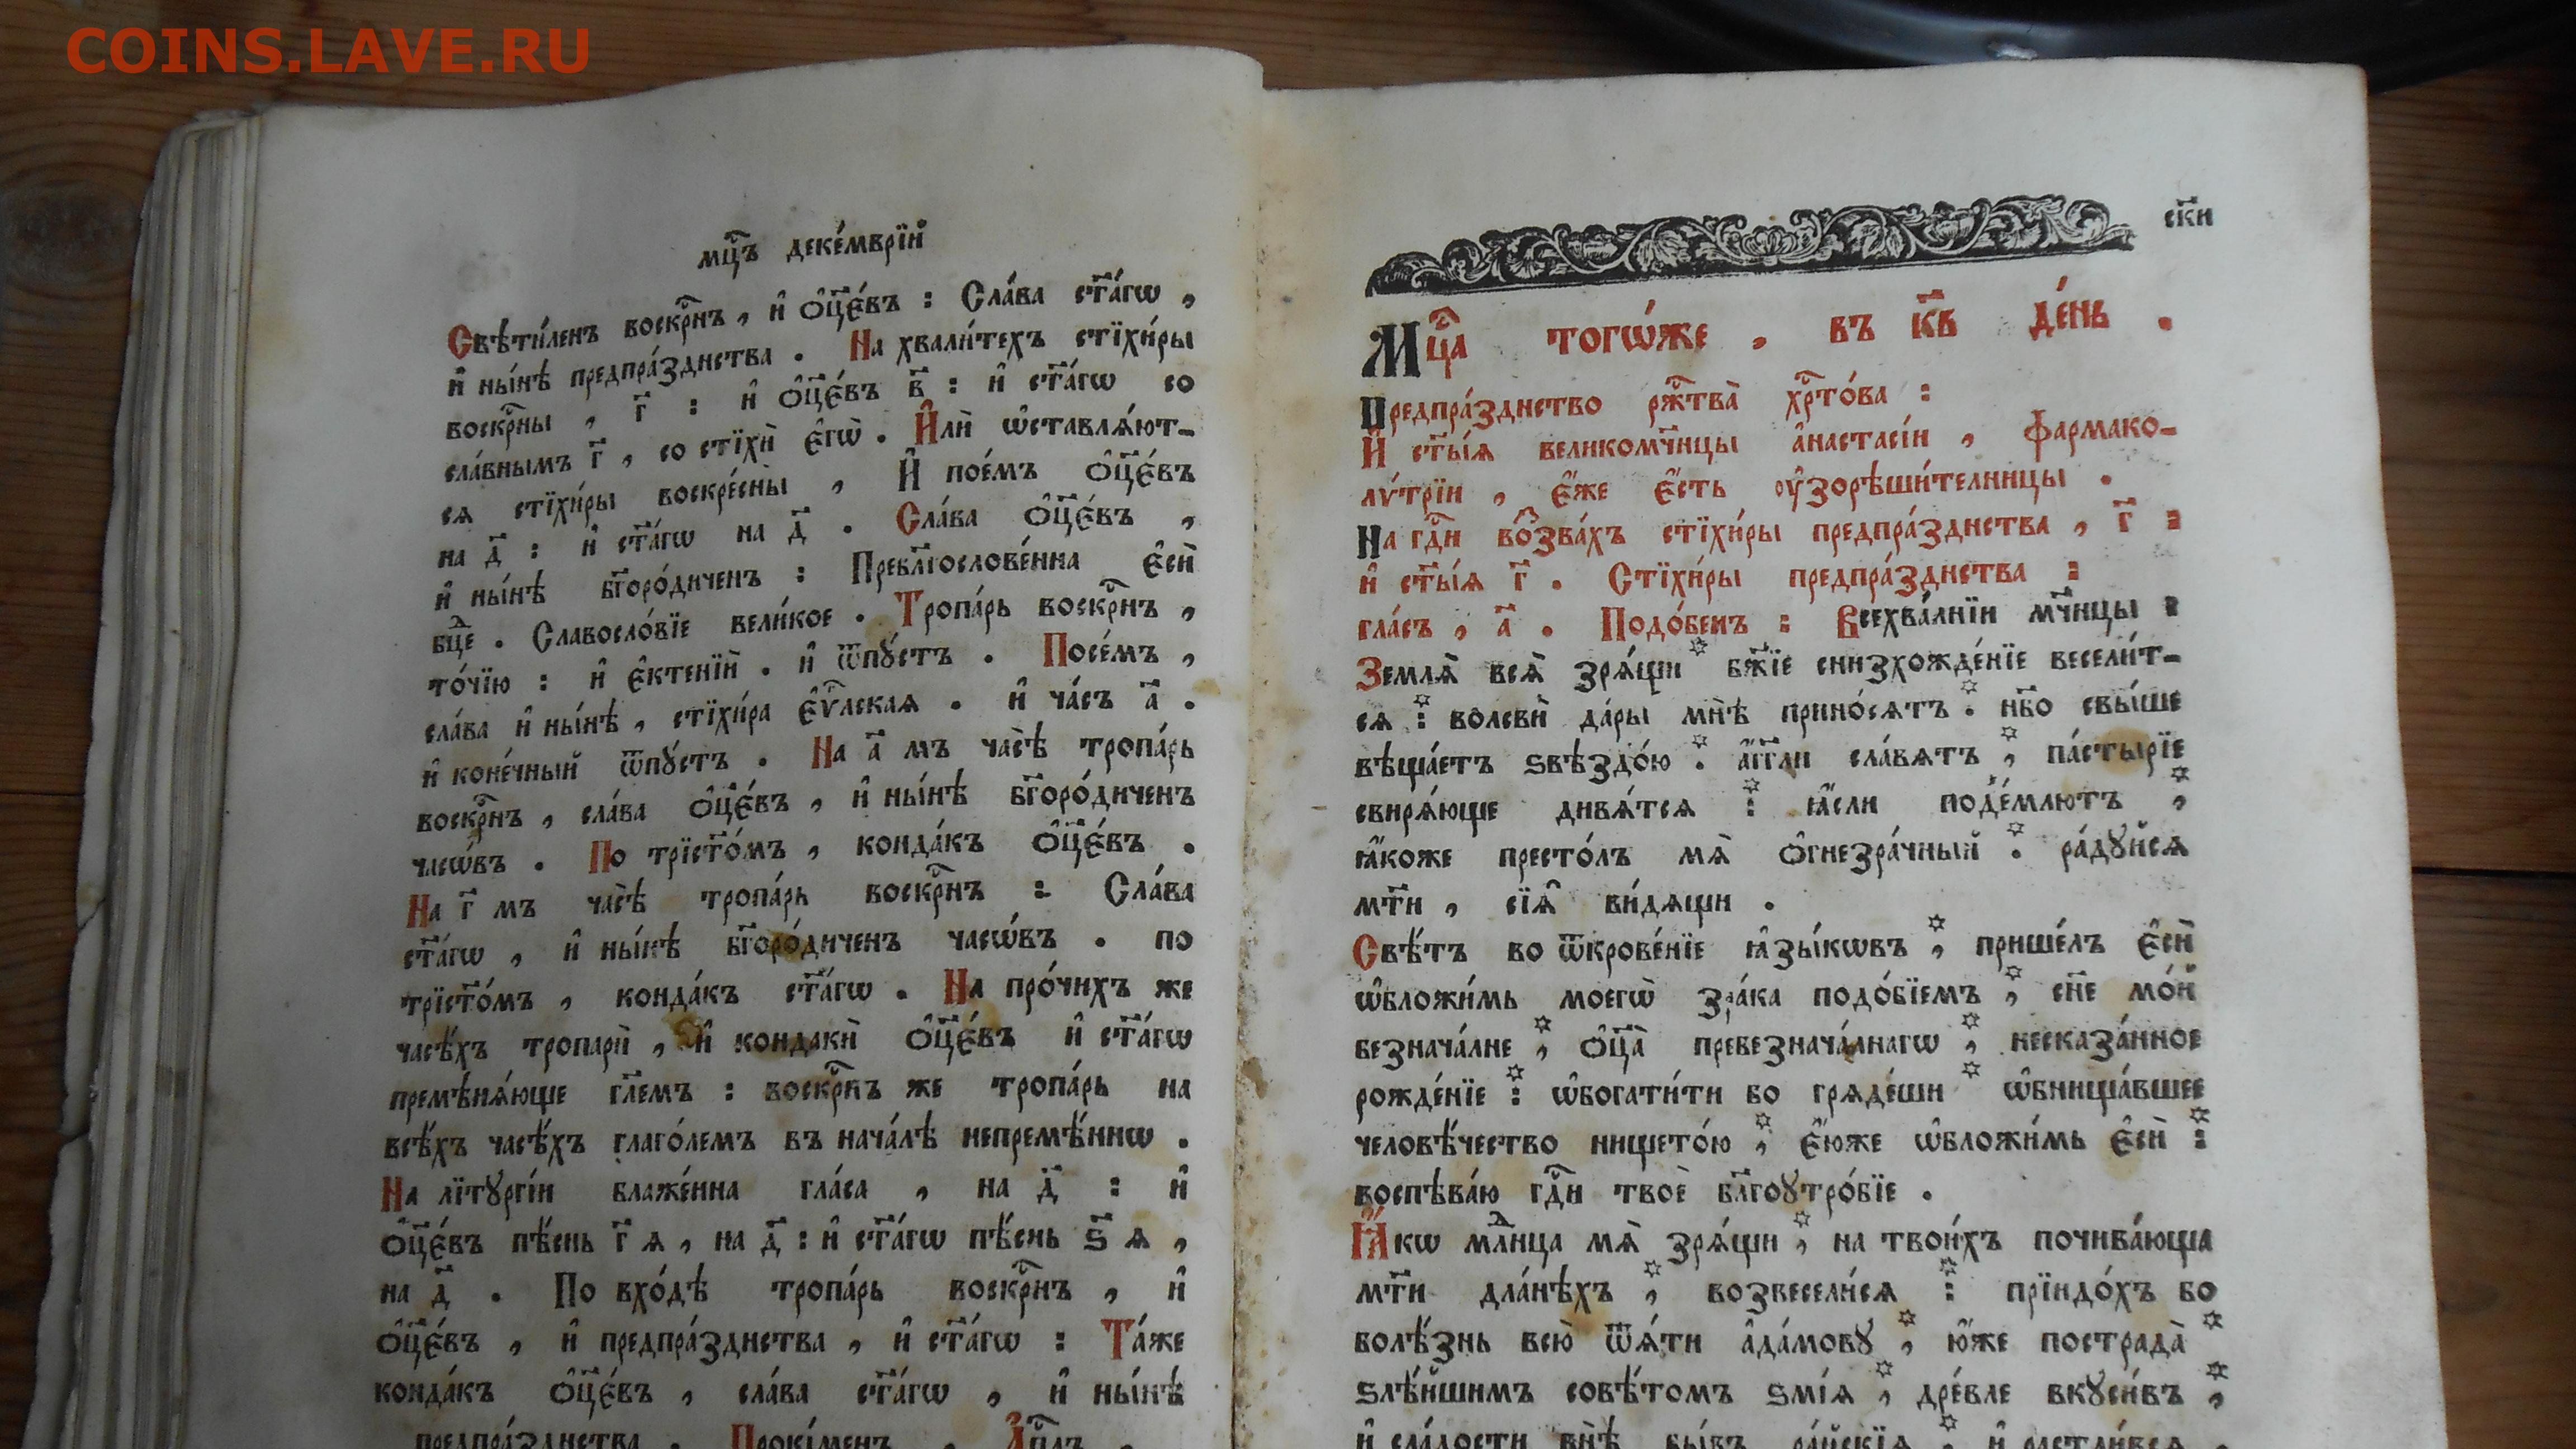 COINS.LAVE.RU
мц҃ъ деке́мврїй
Свѣти́ленъ воскр҃нъ, и҆ ѻ҆ц҃е́въ : Сла́ва ст҃а́гѡ,
и҆ ны́нѣ предпра́зднства . На хвали́техъ стїхи́ры
воскр҃ны, г҃ : и҆ ѻ҆ц҃е́въ в҃ : и҆ ст҃а́гѡ со
сла́внымъ г҃, со стїхѝ є҆гѡ̀ . И҆лѝ ѡ҆ставлѧ́ют-
сѧ стїхи́ры воскре́сны, И҆ пое́мъ ѻ҆ц҃е́въ
на д҃ : и҆ ст҃а́гѡ на д҃ . Сла́ва ѻ҆ц҃е́въ,
и҆ ны́нѣ бг҃оро́диченъ : Пребл҃гослове́нна є҆сѝ
бц҃е . Славосло́вїе вели́кое . Тропа́рь воскр҃нъ,
то́чїю : и҆ є҆ктенїѝ . и҆ ѿпꙋ́стъ . Посе́мъ,
сла́ва и҆ ны́нѣ, стїхи́ра є҆ѵ҃лская . и҆ ча́съ а҃ .
и҆ коне́чный ѿпꙋ́стъ . На а҃ мъ часѣ̀ тропа́рь
воскр҃нъ, сла́ва ѻ҆ц҃е́въ, и҆ ны́нѣ бг҃оро́диченъ
часѡ́въ . По трїст҃о́мъ, конда́къ ѻ҆ц҃е́въ .
На г҃ мъ часѣ̀ тропа́рь воскр҃нъ : Сла́ва
ст҃а́гѡ, и҆ ны́нѣ бг҃оро́диченъ часѡ́въ . по
трїст҃о́мъ, конда́къ ст҃а́гѡ . На про́чихъ же
часѣ́хъ тропарѝ, и҆ кондакѝ ѻ҆ц҃е́въ и҆ ст҃а́гѡ
премѣнѧ́юще гл҃емъ : воскр҃нъ же тропа́рь на
всѣ́хъ часѣ́хъ глаго́лемъ въ нача́лѣ непремѣ́ннѡ .
На лїтꙋргі́и блаже́нна гла́са, на д҃ : и҆
ѻ҆ц҃е́въ пѣ́снь г҃ ѧ, на д҃ : и҆ ст҃а́гѡ пѣ́снь ѕ҃ ѧ,
на д҃ . По вхо́дѣ тропа́рь воскр҃нъ, и҆
ѻ҆ц҃е́въ, и҆ предпра́зднства, и҆ ст҃а́гѡ : Та́же
конда́къ ѻ҆ц҃е́въ, сла́ва ст҃а́гѡ, и҆ ны́нѣ
предпра́зднства . Прокі́менъ . А҆п҃лъ .
ск҃и
Мц҃а тогѡ́же . въ к҃в де́нь .
Предпра́зднство рж҃тва̀ хр҃то́ва :
И҆ ст҃ы́ѧ великомч҃нцы а҆настасі́и, фармако-
лѵ́трїи, є҆́же є҆́сть ᲂу҆зорѣши́телницы .
На гд҃и воззва́хъ стїхи́ры предпра́зднства, г҃ :
и҆ ст҃ы́ѧ г҃ . Стїхи́ры предпра́зднства :
гла́съ, а҃ . Подо́бенъ : Всехва́лнїи мч҃нцы :
Землѧ̀ всѧ̀ зрѧ́щи бж҃їе снизхожде́нїе весели́т-
сѧ : волсвѝ да́ры мнѣ̀ прино́сѧтъ . нб҃о свы́ше
вѣща́етъ ѕвѣздо́ю . а҆́гг҃ли сла́вѧтъ, па́стырїе
свирѧ́юще дивѧ́тсѧ : ꙗ҆́сли под̾е́млютъ,
ꙗ҆́коже престо́лъ мѧ̀ ѻ҆гнезра́чный . ра́дꙋйсѧ
мт҃и, сїѧ̑ ви́дѧщи .
Свѣ́тъ во ѿкрове́нїе ꙗ҆зы́кѡвъ, прише́лъ є҆сѝ
ѡ҆бложи́мь моегѡ̀ зра́ка подо́бїемъ, сн҃е мо́й
безнача́лне, ѻ҆ц҃а̀ превезнача́лнагѡ, несказа́нное
рожде́нїе : ѡ҆богати́ти бо грѧде́ши ѡ҆бнища́вшее
человѣ́чество нището́ю, є҆́юже ѡ҆бложи́мь є҆сѝ :
воспѣва́ю гд҃и твоѐ бл҃гоꙋтро́бїе .
Ꙗ҆́кѡ млⷣнца мѧ̀ зрѧ́щи, на твои́хъ почива́юща
мт҃и дла́нѣхъ, возвесели́сѧ : прїидо́хъ бо
болѣ́знь всю̀ ѿѧ́ти а҆да́мовꙋ, ю҆́же пострада̀
ѕлѣ́йшимъ совѣ́томъ ѕмі́ѧ, дре́вле вкꙋси́въ,
и҆ сла́дости внѣ̀ бы́въ ра́йскїѧ . и҆ растли́всѧ .